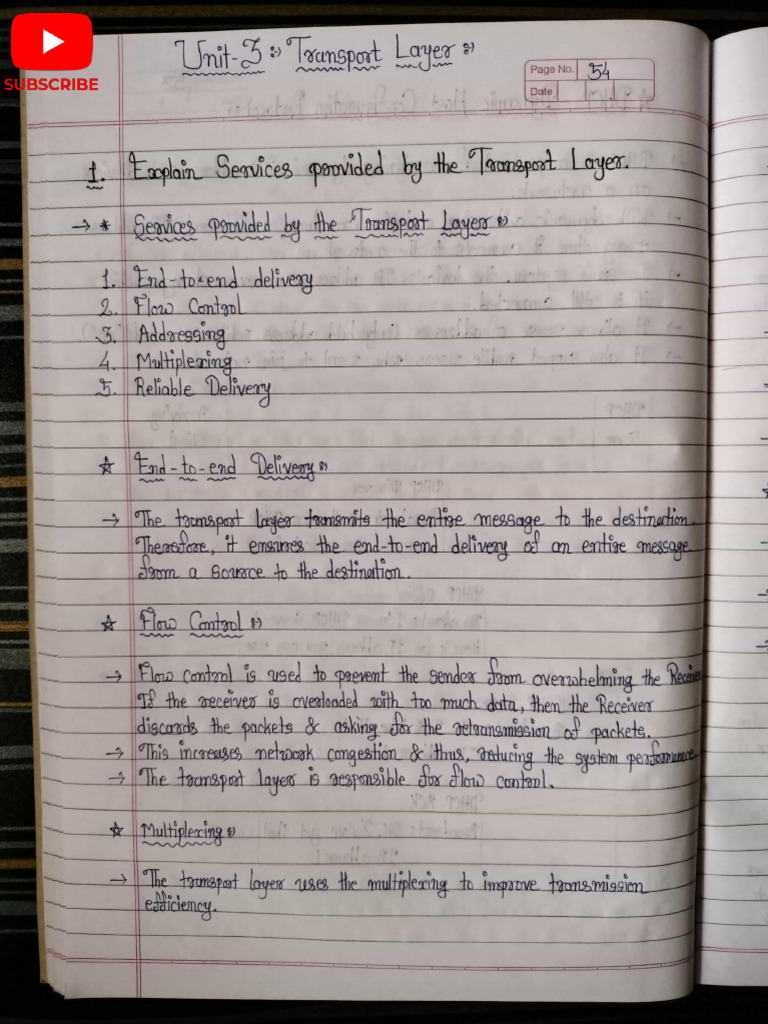 SUBSCRIBE
Unit-3 :- Transport Layer :-
Page No. 54
Date
1. Explain Services provided by the Transport Layer.
→ * Services provided by the Transport Layer :-
1. End-to-end delivery
2. Flow Control
3. Addressing
4. Multiplexing
5. Reliable Delivery
☆ End-to-end Delivery :-
→ The transport layer transmits the entire message to the destination.
Therefore, it ensures the end-to-end delivery of an entire message
from a source to the destination.
☆ Flow Control :-
→ Flow control is used to prevent the sender from overwhelming the Receiver
If the receiver is overloaded with too much data, then the Receiver
discards the packets & asking for the retransmission of packets.
→ This increases network congestion & thus, reducing the system performance
→ The transport layer is responsible for flow control.
☆ Multiplexing :-
→ The transport layer uses the multiplexing to improve transmission
efficiency.